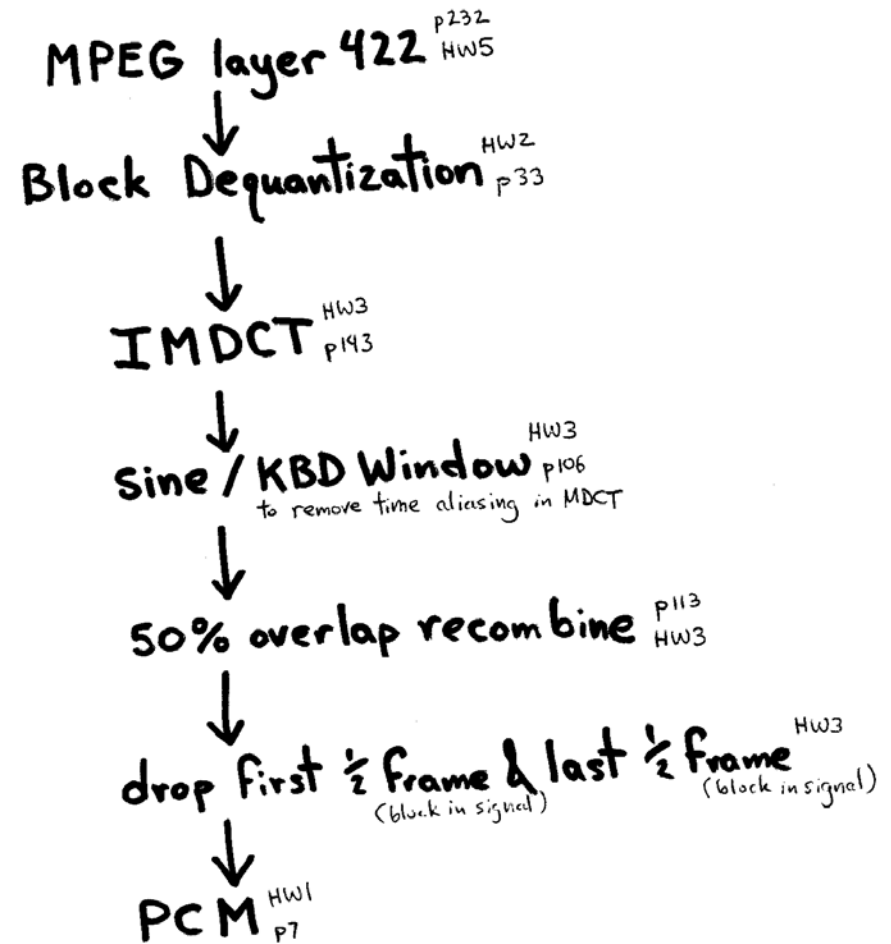 MPEG layer 422 p232
HW5
Block Dequantization HW2
p33
IMDCT HW3
p143
Sine / KBD Window HW3
p106
to remove time aliasing in MDCT
50% overlap recombine p113
HW3
drop first 1/2 frame & last 1/2 frame HW3
(block in signal) (block in signal)
PCM HW1
p7